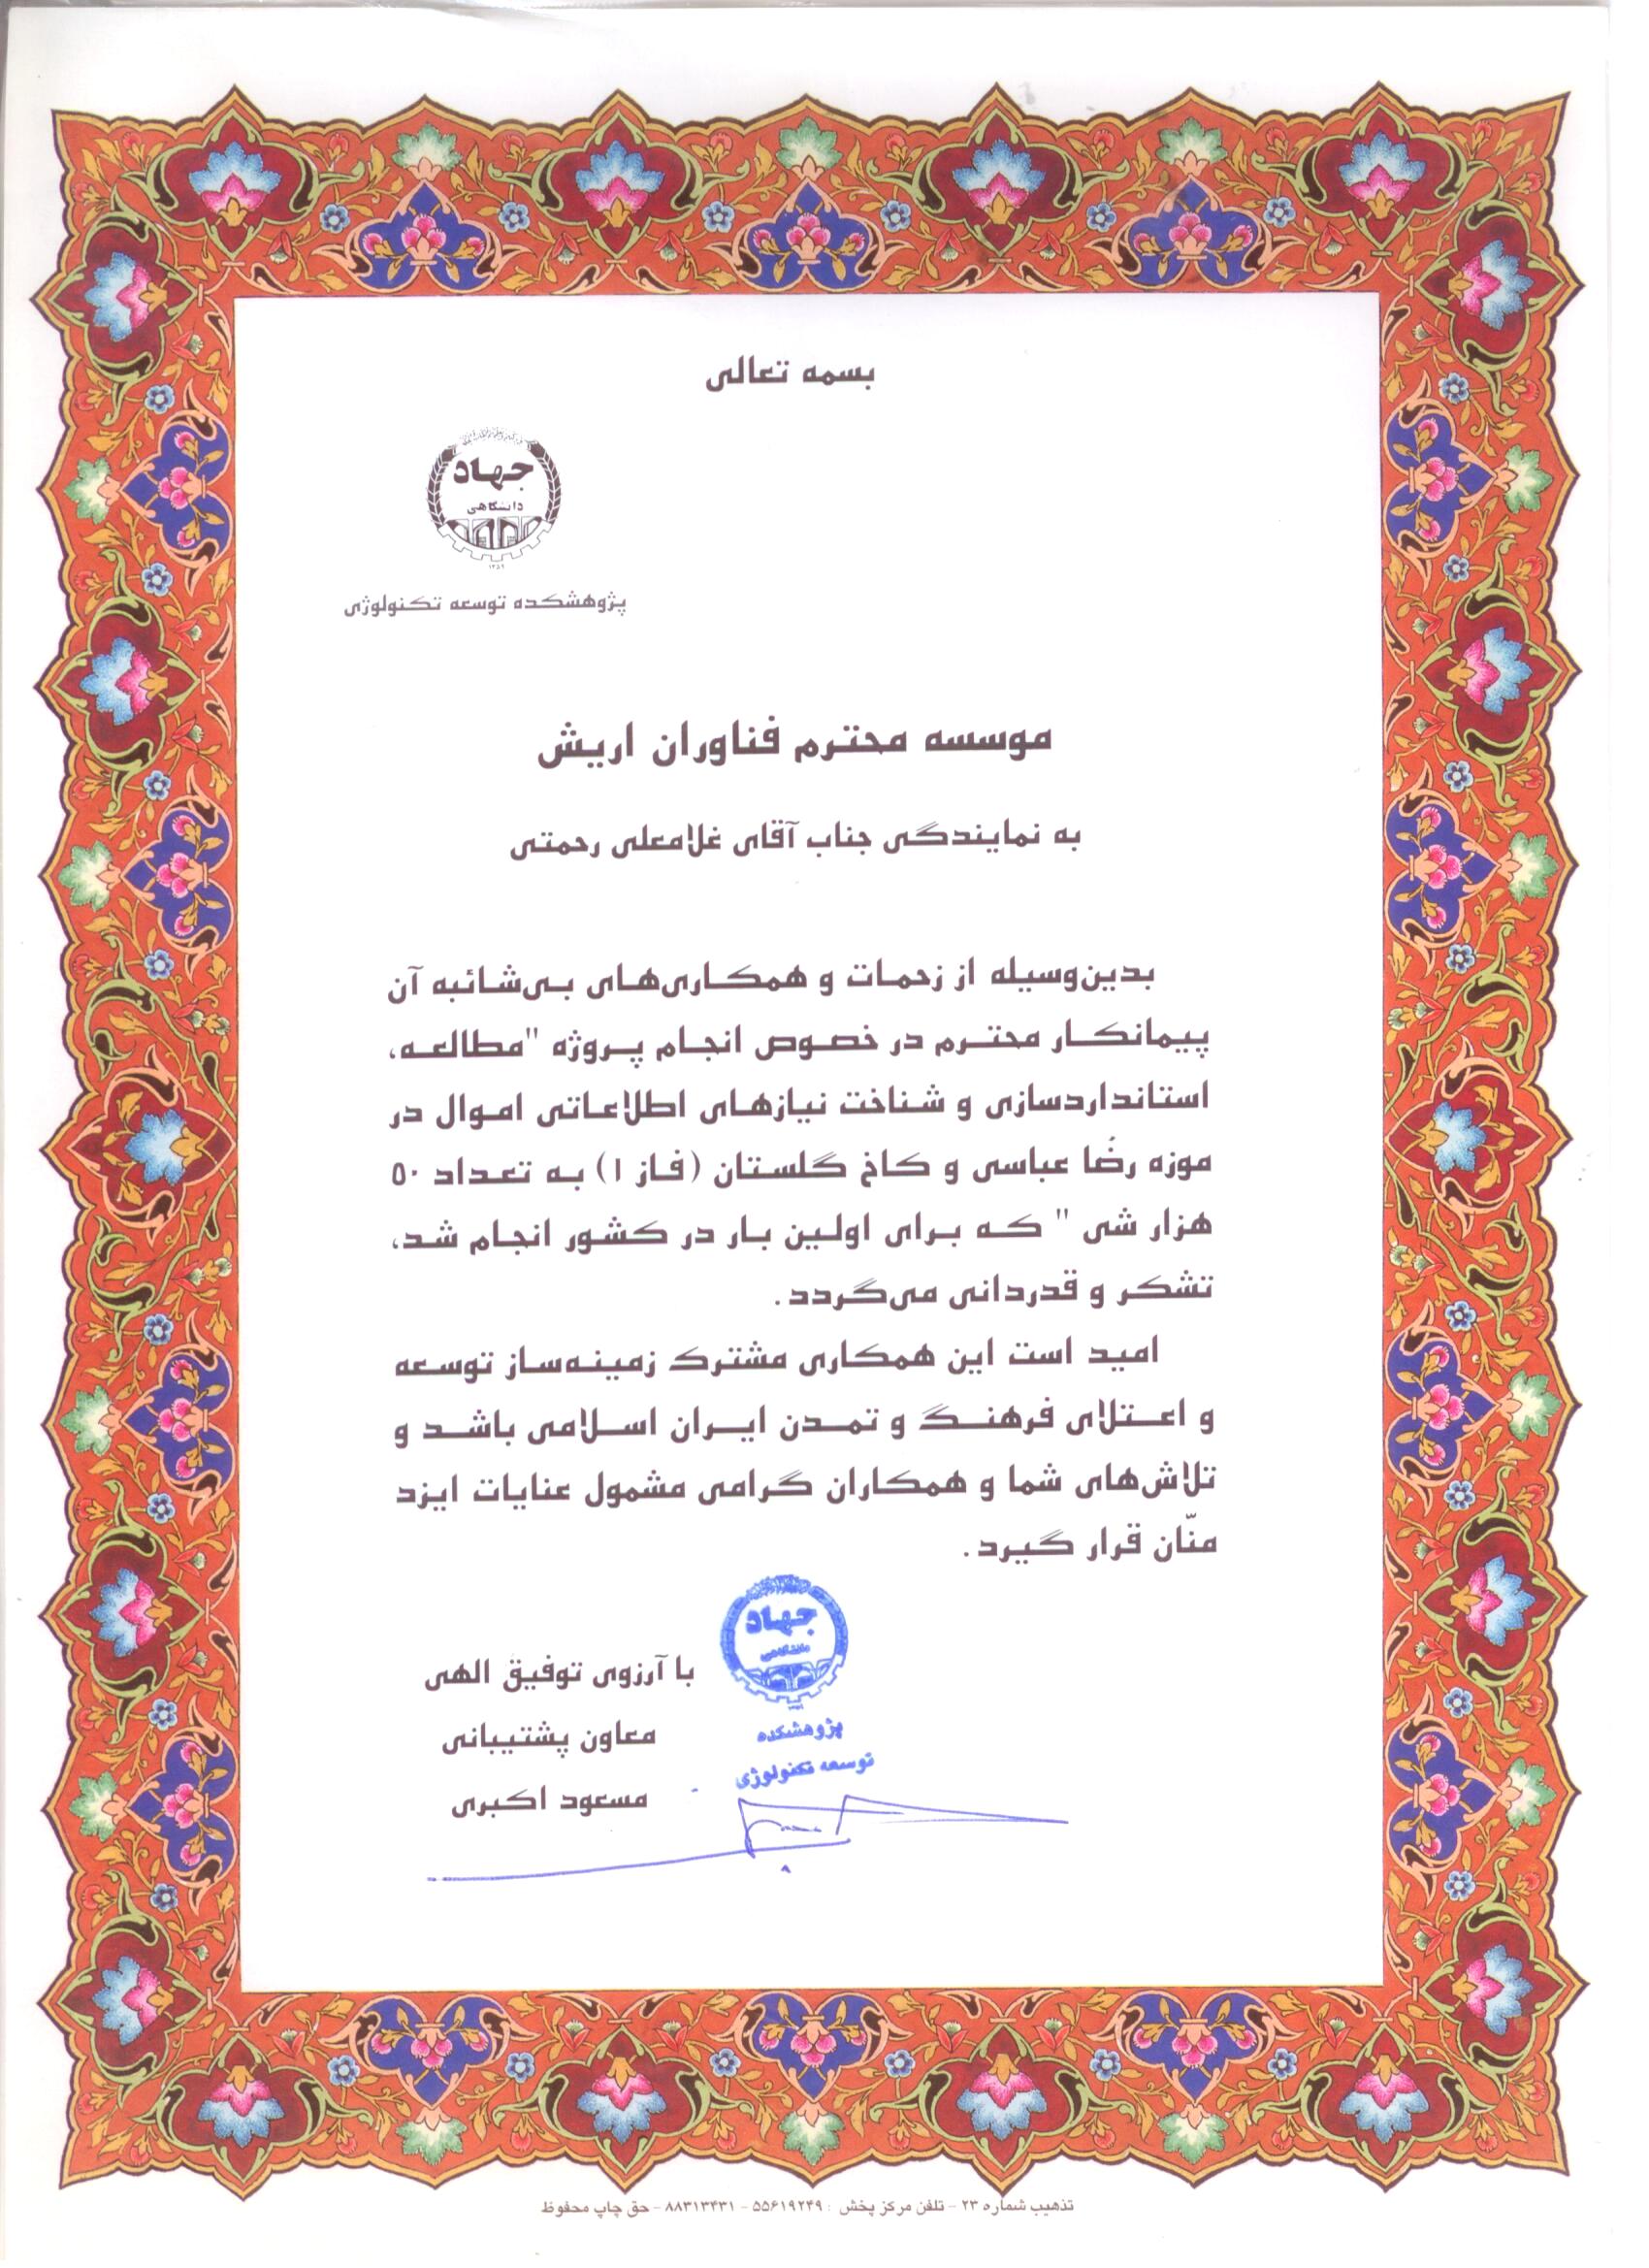 بسمه تعالی
جهاد
دانشگاهی
۱۳۵۹
پژوهشکده توسعه تکنولوژی
موسسه محترم فناوران اریش
به نمایندگی جناب آقای غلامعلی رحمتی
بدین‌وسیله از زحمات و همکاری‌های بی‌شائبه آن
پیمانکار محترم در خصوص انجام پروژه "مطالعه،
استانداردسازی و شناخت نیازهای اطلاعاتی اموال در
موزه رضا عباسی و کاخ گلستان (فاز ۱) به تعداد ۵۰
هزار شی " که برای اولین بار در کشور انجام شد،
تشکر و قدردانی می‌گردد.
امید است این همکاری مشترک زمینه‌ساز توسعه
و اعتلای فرهنگ و تمدن ایران اسلامی باشد و
تلاش‌های شما و همکاران گرامی مشمول عنایات ایزد
منّان قرار گیرد.
با آرزوی توفیق الهی
معاون پشتیبانی
مسعود اکبری
جهاد
دانشگاهی
پژوهشکده
توسعه تکنولوژی
تذهیب شماره ۲۳ - تلفن مرکز پخش : ۵۵۶۱۹۲۴۹ - ۸۸۳۱۳۴۳۱ - حق چاپ محفوظ